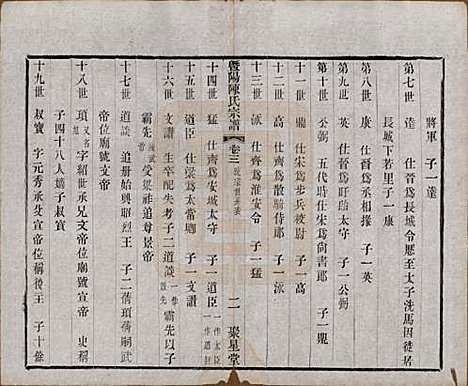 將軍 子一達
第七世 達 仕晉爲長城令歷至太子洗馬因徙居
長城下若里子一康
第八世 康 仕晉爲丞相掾 子一英
第九世 英 仕晉爲盱眙太守 子一公弼
第十世 公弼 五代時仕宋爲尚書郎 子一鼎
十一世 鼎 仕宋爲步兵校尉 子一高
十二世 高 仕齊爲散騎侍郎 子一詠
十三世 詠 仕齊爲淮安令 子一猛
暨陽陳氏宗譜 卷三 二 聚星堂
十四世 猛 仕齊爲安城太守 子一道臣 一作太臣 一作道巨
十五世 道臣 仕梁爲太常卿 子一文讚
十六世 文讚 生卒配失考子二道談 一作談先 霸先以子
霸先 陳武帝 受梁禪追尊景帝
十七世 道談 始興昭烈王 子二蒨頊蒨嗣武
帝位廟號文帝
十八世 頊 又名 字紹世承兄文帝位廟號宣帝 史稱
子四十八人嫡子叔寶
十九世 叔寶 字元秀承父宣帝位稱後王 子十餘